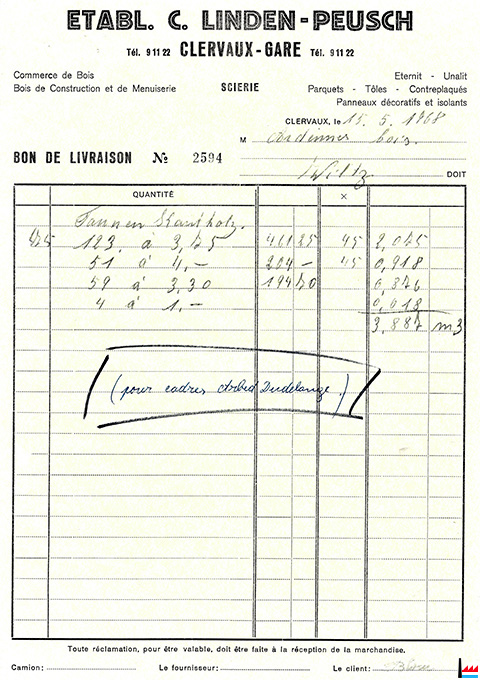 ETABL. C. LINDEN-PEUSCH
Tél. 9 11 22 CLERVAUX-GARE Tél. 9 11 22
Commerce de Bois
Bois de Construction et de Menuiserie
SCIERIE
Eternit - Unalit
Parquets - Tôles - Contreplaqués
Panneaux décoratifs et isolants
CLERVAUX, le 15. 5. 1968
M Ardenner bois.
BON DE LIVRAISON № 2594
Wiltz DOIT
QUANTITÉ ×
Tannen Kantholz.
4/5 123 à 3,75 461 25 45 2,075
51 à 4,- 204 - 45 0,918
59 à 3,30 194 70 0,876
4 à 1,- 0,018
3,887 m3
(pour cadres Arbed Dudelange.)
Toute réclamation, pour être valable, doit être faite à la réception de la marchandise.
Camion: Le fournisseur: Le client: